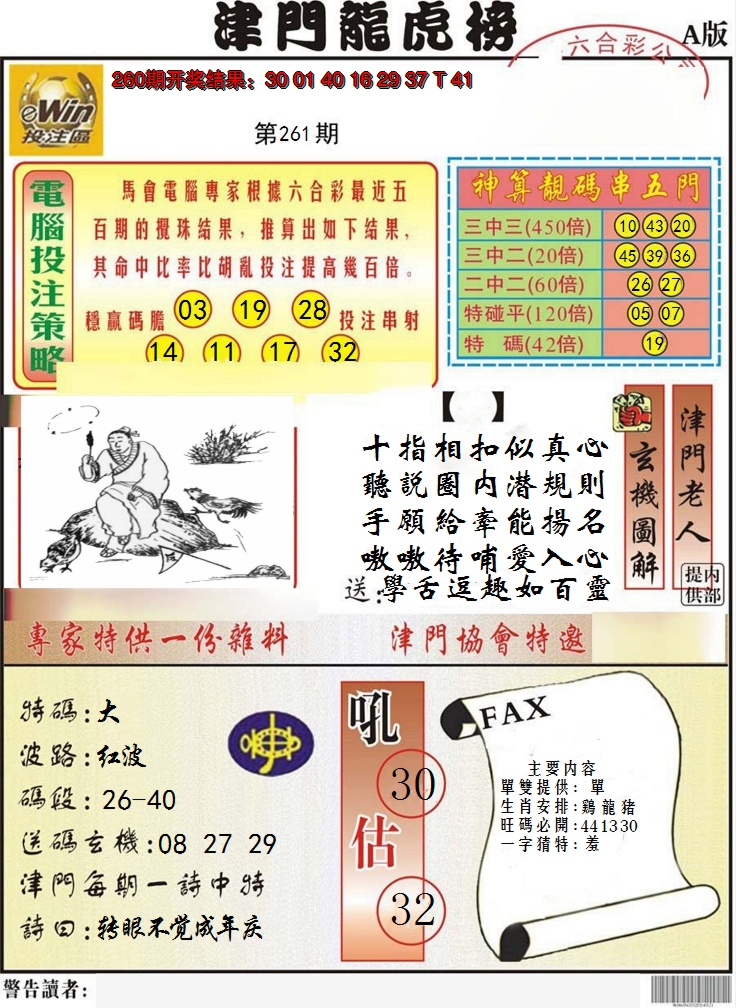 津門龍虎榜
A版
六合彩公
260期开奖结果：30 01 40 16 29 37 T 41
eWin
投注區
第261期
電腦投注策略
馬會電腦專家根據六合彩最近五
百期的攪珠结果，推算出如下结果，
其命中比率比胡亂投注提高幾百倍。
穩贏碼膽 03 19 28 投注串射
14 11 17 32
神算靚碼串五門
三中三(450倍) 10 43 20
三中二(20倍) 45 39 36
二中二(60倍) 26 27
特碰平(120倍) 05 07
特 碼(42倍) 19
【 】
十指相扣似真心
聽説圈内潜規則
手願給牽能揚名
嗷嗷待哺愛入心
送:學舌逗趣如百靈
玄機圖解
津門老人
内部提供
專家特供一份雜料
津門協會特邀
特碼:大
波路:红波
碼段:26-40
送碼玄機:08 27 29
津門每期一詩中特
詩曰:转眼不觉成年庆
吼
30
估
32
FAX
主要内容
單雙提供: 單
生肖安排:鷄龍猪
旺碼必開:441330
一字猜特:羞
警告讀者: